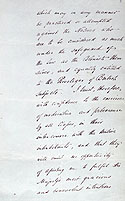 which may in any manner
be practised or attempted
against the Natives who
are to be considered as much
under the safeguard of
the law as the Colonists them
selves, and equally entitled
to the Privileges of British
Subjects. I trust, therefore,
with confidence to the exercise
of moderation and forbearance
by all Classes, in their
intercourse with the Native
inhabitants, and that they
will omit no opportunity
of assisting me to fulfil His
Majesty's most gracious
and benevolent intentions